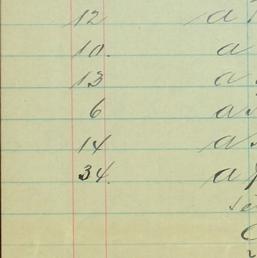 12 a
10. a
13 a
6 a
14 a
34. a